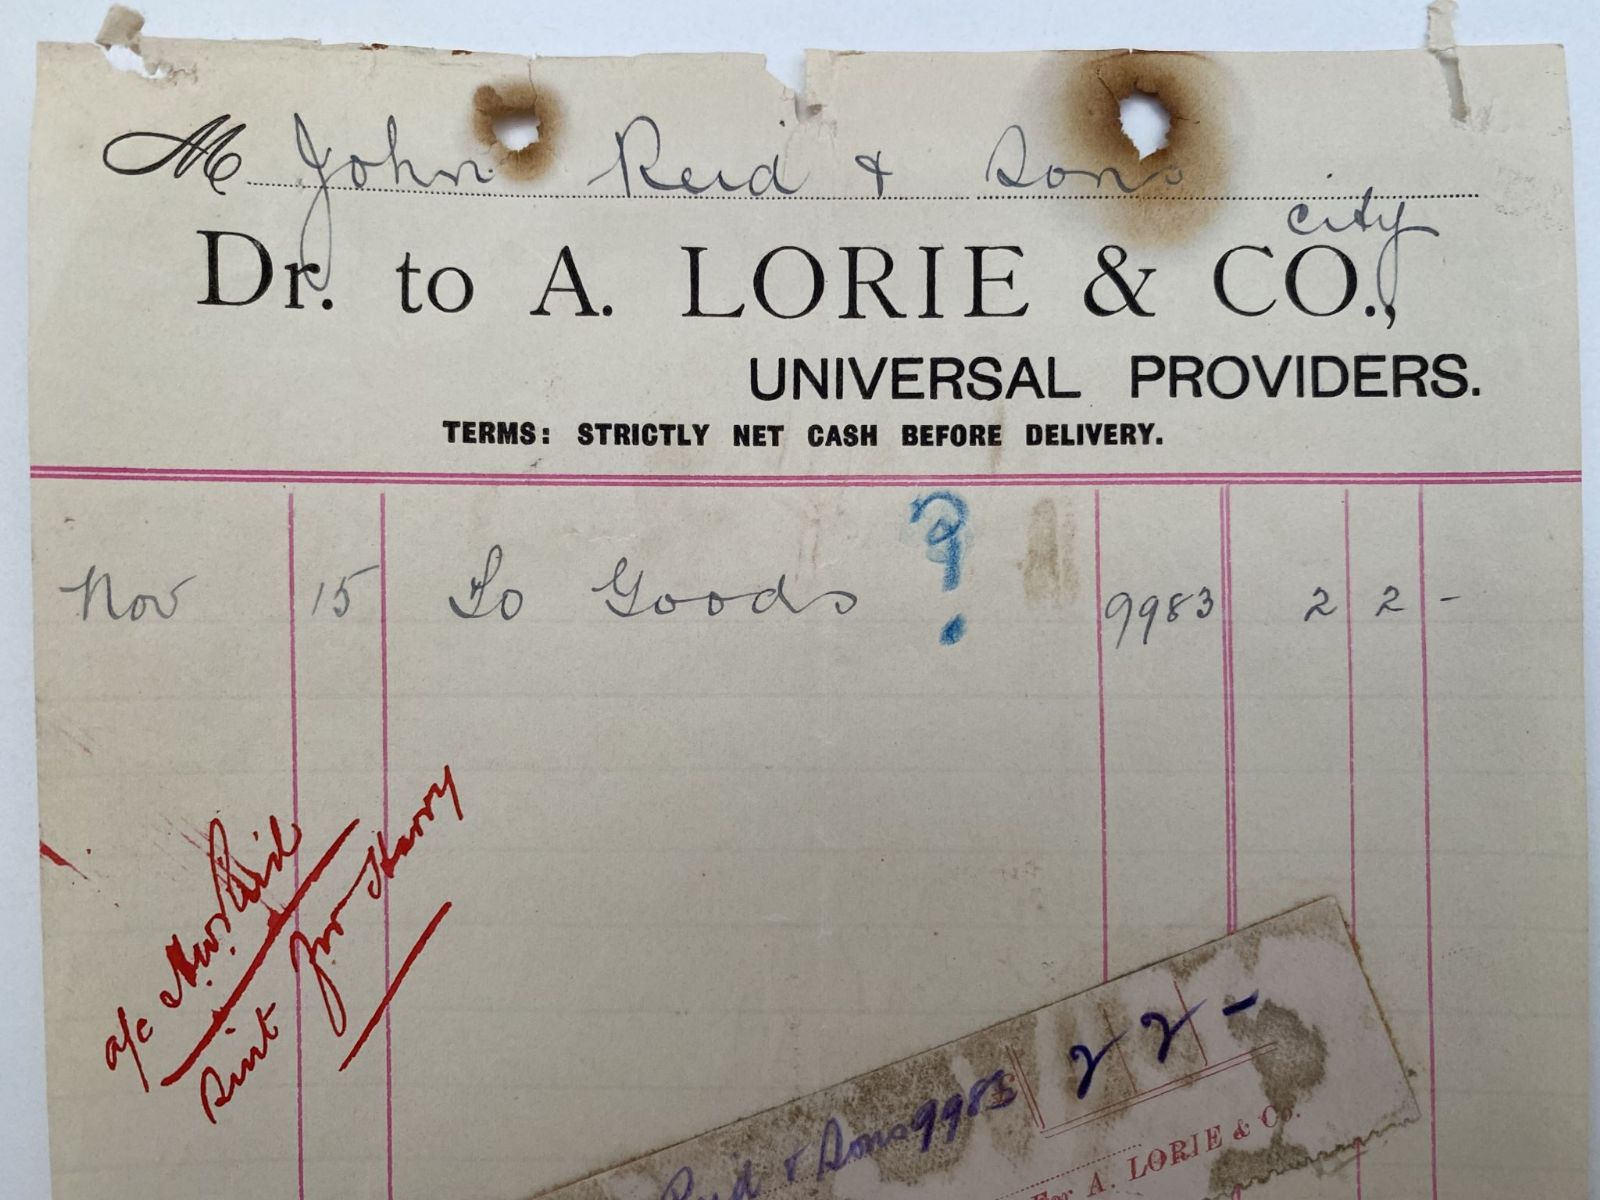 M John Reid & Sons
city
Dr. to A. LORIE & CO.,
UNIVERSAL PROVIDERS.
TERMS: STRICTLY NET CASH BEFORE DELIVERY.
?
Nov 15 To Goods 9983 2 2 -
a/c Reid
for Harry
Reid & Sons 9983 £ 2 2 -
For A. LORIE & Co.